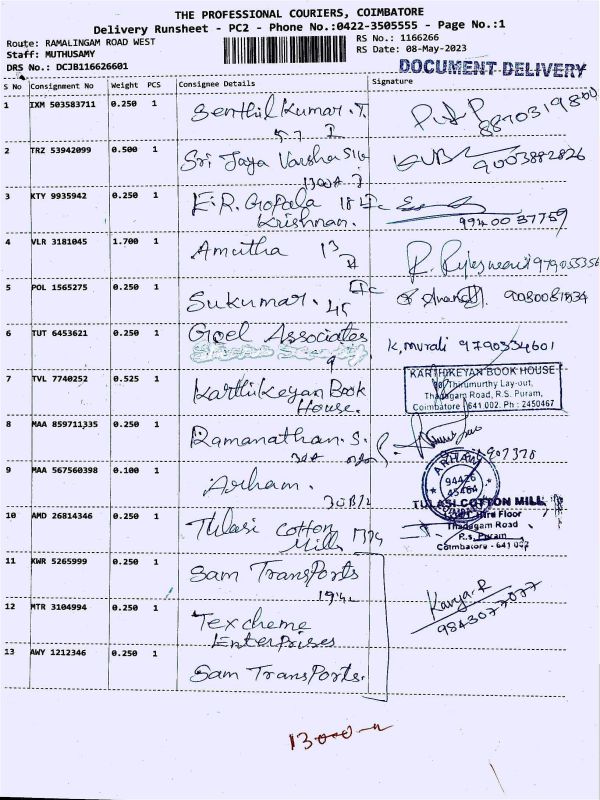 THE PROFESSIONAL COURIERS, COIMBATORE
Delivery Runsheet - PC2 - Phone No.:0422-3505555 - Page No.:1
Route: RAMALINGAM ROAD WEST
RS No.: 1166266
Staff: MUTHUSAMY
RS Date: 08-May-2023
DRS No.: DCJB116626601
DOCUMENT DELIVERY
S No Consignment No Weight PCS Consignee Details Signature
1 IXM 503583711 0.250 1 Senthil Kumar. T.
2 TRZ 53942099 0.500 1 Sri Jaya Varsha
9003882826
3 KTY 9935942 0.250 1 E.R. Gopala
Krishnan.
99400 37759
4 VLR 3181045 1.700 1 Amutha 13
5 POL 1565275 0.250 1 Sukumar. 45
6 TUT 6453621 0.250 1 Goel Associates
9
K. murali 9790334601
7 TVL 7740252 0.525 1 Karthikeyan Book
House.
KARTHIKEYAN BOOK HOUSE
Thirumurthy Lay-out,
Thadagam Road, R.S. Puram,
Coimbatore 641 002. Ph : 2450467
8 MAA 859711335 0.250 1 Ramanathan. S.
9 MAA 567560398 0.100 1 Arham.
ARHAM
94426
45464
10 AMD 26814346 0.250 1 Tulasi Cotton
Mills
TULASI COTTON MILL
Floor
Thadagam Road
R.s. Puram
Coimbatore - 641 002
11 KWR 5265999 0.250 1 Sam Transports
12 MTR 3104994 0.250 1 Texcheme
Enterprises
Kavya. R
9843077077
13 AWY 1212346 0.250 1 Sam Transports.